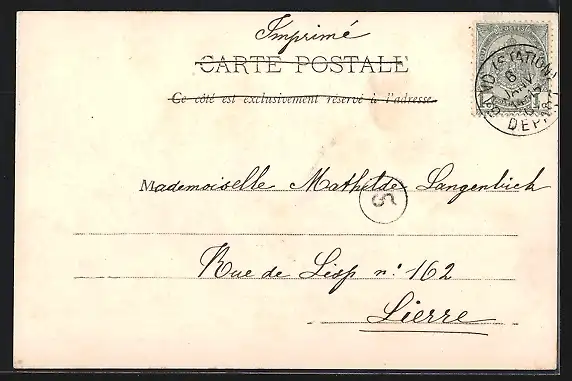 Imprimé
CARTE POSTALE
Ce côté est exclusivement réservé à l'adresse.
(STATION)
6
JANV
DEPART
S
Mademoiselle Mathilde Langenbich
Rue de Lisp n: 162
Lierre